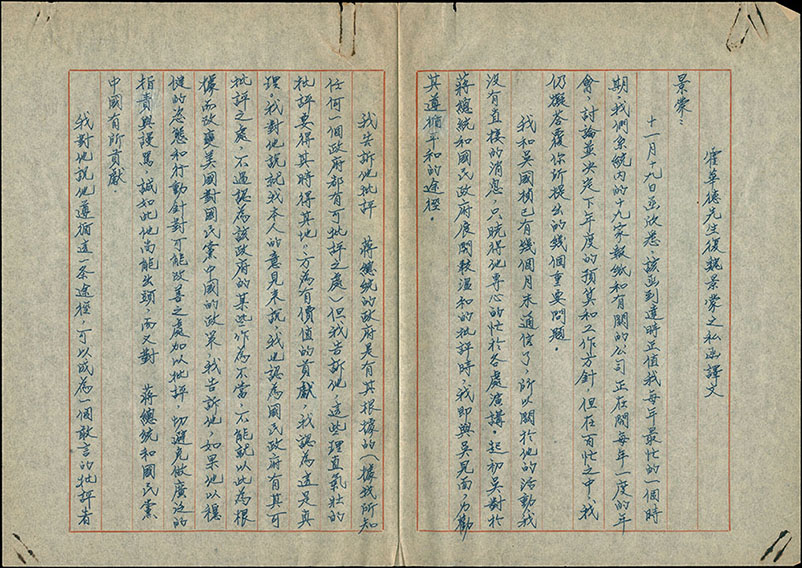 霍華德先生復魏景蒙之私函譯文
景蒙：
十一月十九日函欣悉，該函到達時正值我每年最忙的一個時
期，我們系統內的十九家報紙和有關的公司正在開每年一度的年
會，討論並決定下年度的預算和工作方針，但在百忙之中，我
仍擬答覆你所提出的幾個重要問題。
我和吳國楨已有幾個月未通信了，所以關於他的活動我
沒有直接的消息，只曉得他專心的忙於各處演講。起初吳對於
蔣總統和國民政府展開較溫和的批評時，我即與吳見面，力勸
其遵循平和的途徑。
我告訴他批評　蔣總統的政府是有其根據的（據我所知
任何一個政府都有可批評之處）但我告訴他，這些理直氣壯的
批評要得其時得其地，方為有價值的貢獻，我認為這是真
理。我對他說就我本人的意見來說，我也認為國民政府有其可
批評之處，不過認為該政府的某些作為不當，不能就以此為根
據而改變美國對國民黨中國的政策，我告訴他，如果他以穩
健的姿態和行動針對可能改善之處加以批評，切避免做廣泛的
指責與謾罵，誠如此他尚能出頭，而又對　蔣總統和國民黨
中國有所貢獻。
我對他說他遵循這一条途徑，可以成為一個敢言的批評者